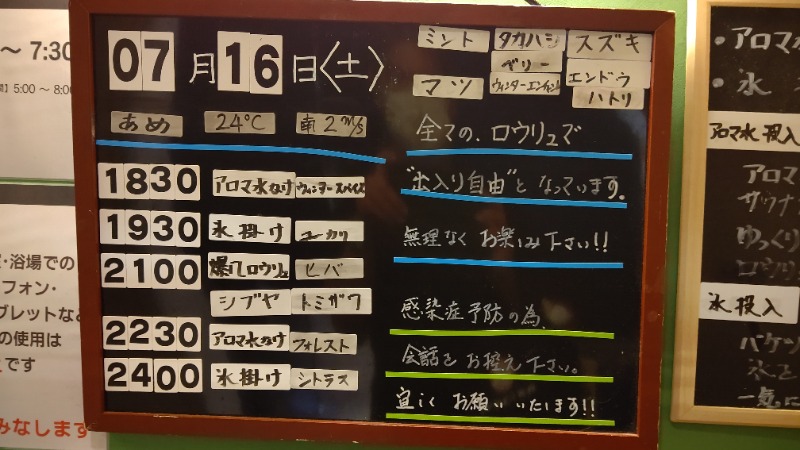 ～ 7:30
5:00 ～ 8:00
・浴場での
フォン・
ブレットなど
の使用は
です
みなします
07月16日〈土〉
あめ 24℃ 南2m/s
1830 アロマ水かけ ウィンタースパイス
1930 氷掛け ユーカリ
2100 爆汗ロウリュ ヒバ
シブヤ トミザワ
2230 アロマ水かけ フォレスト
2400 氷掛け シトラス
ミント タカハシ スズキ
ベリー
マツ エンドウ
ハトリ
全ての、ロウリュで
"出入り自由"となっています。
無理なくお楽しみ下さい!!
感染症予防の為、
会話をお控え下さい。
宜しくお願いいたします!!
・アロマ
・氷
アロマ水投入
アロマ
サウナ
ゆっくり
ロウリ
氷投入
バケツ
氷を
一気に